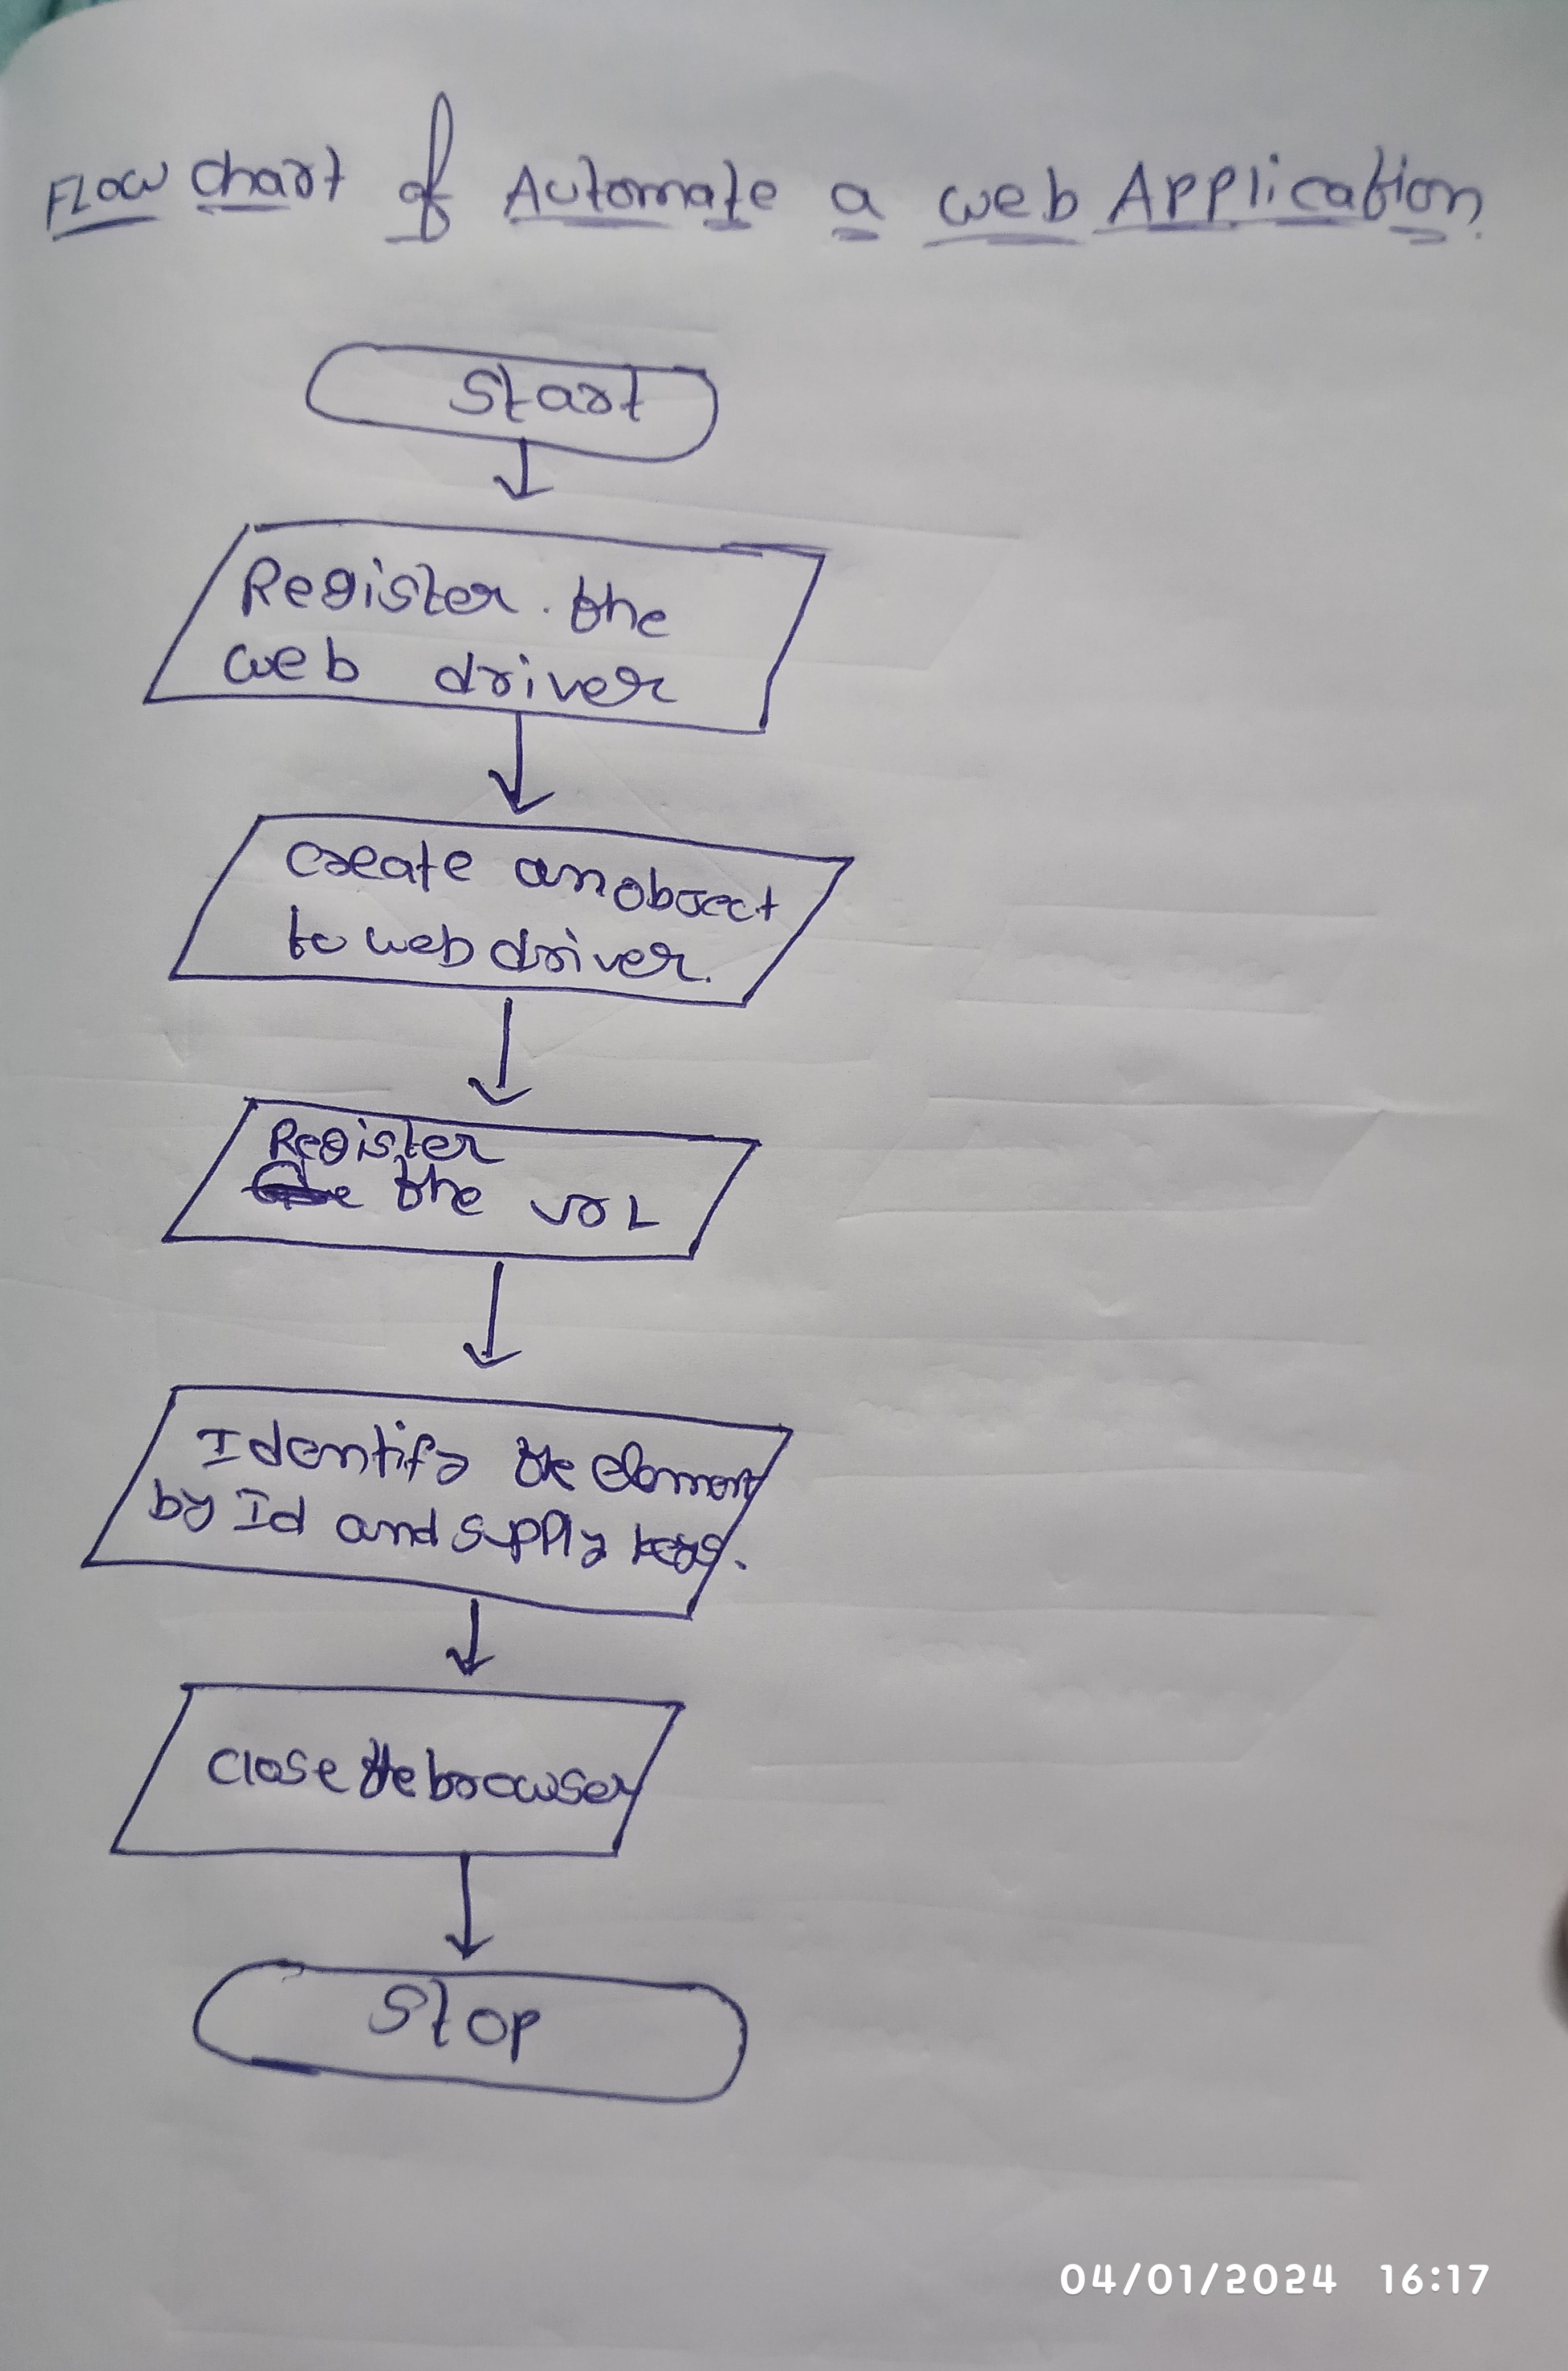 Flow chart of Automate a web Application.
Start
Register the
web driver
create an object
to web driver.
Register
the URL
Identify the element
by Id and supply keys.
close the browser
Stop
04/01/2024 16:17